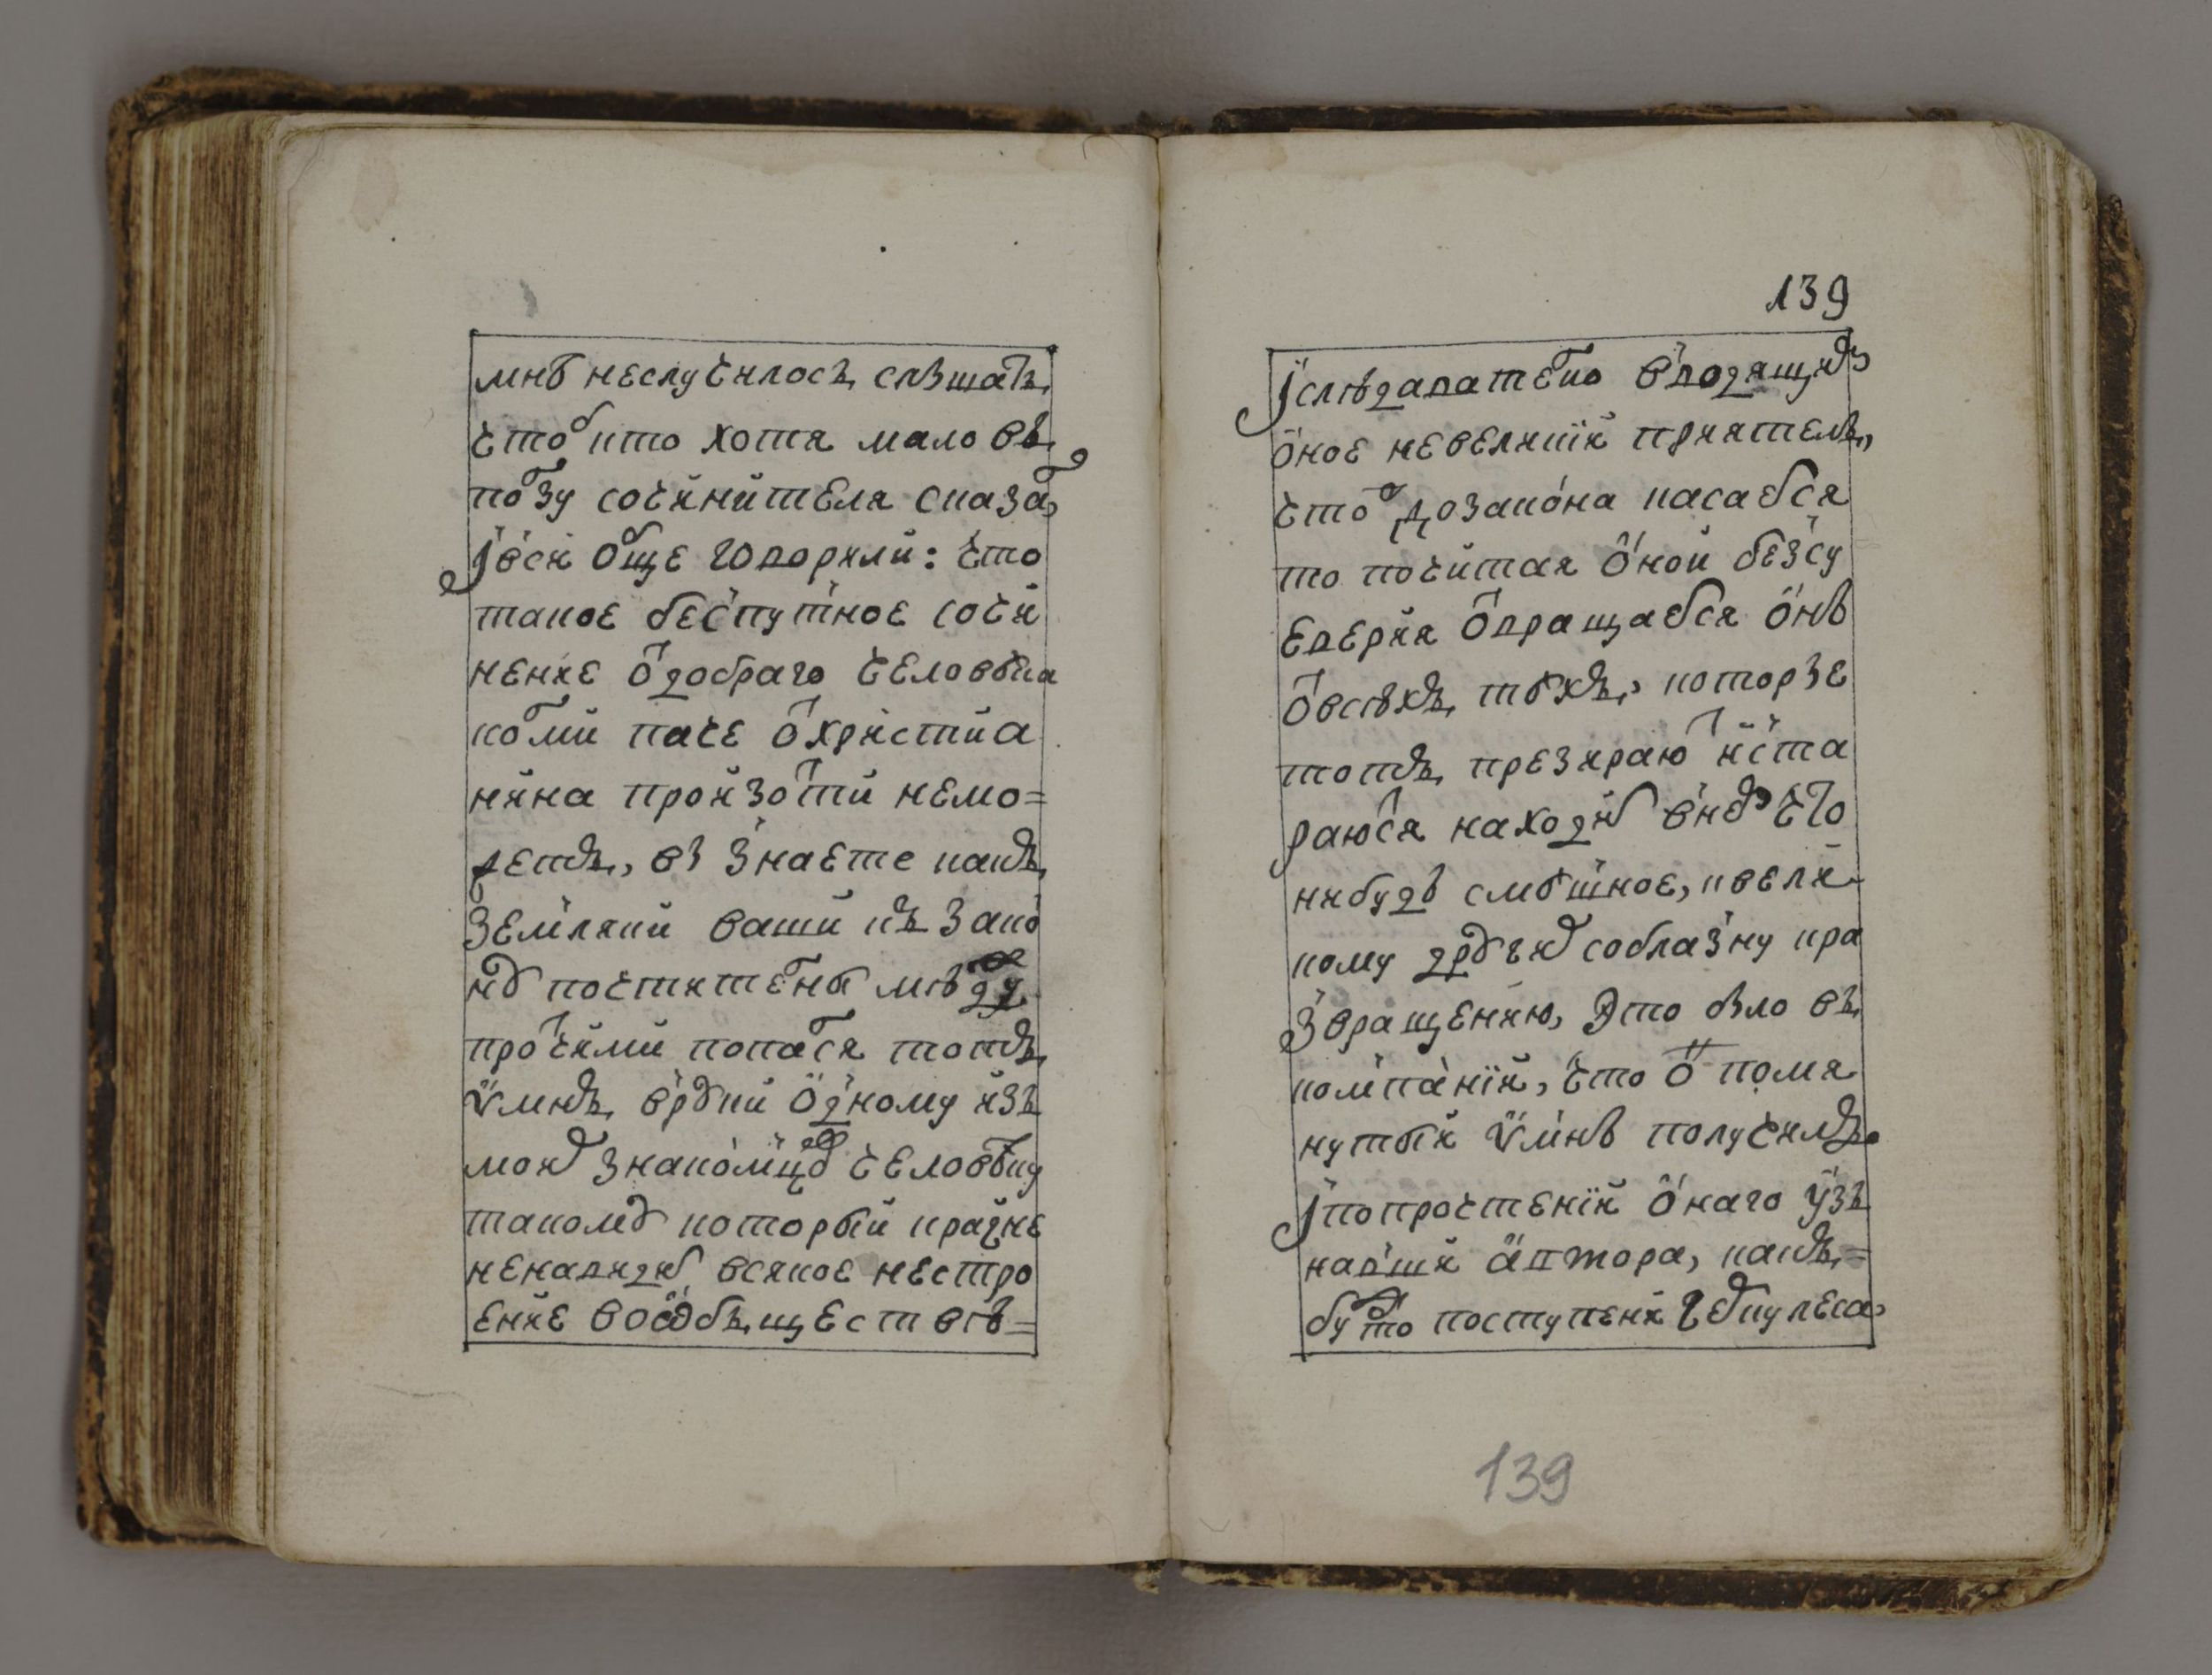 мнѣ неслучилось слышать,
чтоб кто хотя мало въ
ползу сочинителя сказал,
Iвси обще говорили: что
такое беспутное сочи
нение ѿдобраго человѣка
колми паче ѿхристиа
нина произоити немо=
жетъ, вы знаете какъ
земляки ваши къ зако
нꙋ почтителны мѣжду
протчими попался тотъ
ѵмнъ вруки одному изъ
моихъ знакомцовъ человѣку
такомꙋ который крайне
ненавидитъ всякое нестро
ение вообъществѣ=
139
Iслѣдавателно входящихъ
оное невеликий приятель,
что дозакона касается
то почитая оной безсу
еверия ѿвращается онъ
ѿвсѣхъ тѣхъ, которые
тотъ презираютъ иста
раются находить внемъ что
нибудь смѣшное, квели
кому другихъ соблазну кра
звращению, Это было въ
компании, что ѻ помя
нутый ѵмнъ получилъ.
Iпопрочтении онаго узъ
навши аптора, какъ=
бутто поступени геркулеса,
139